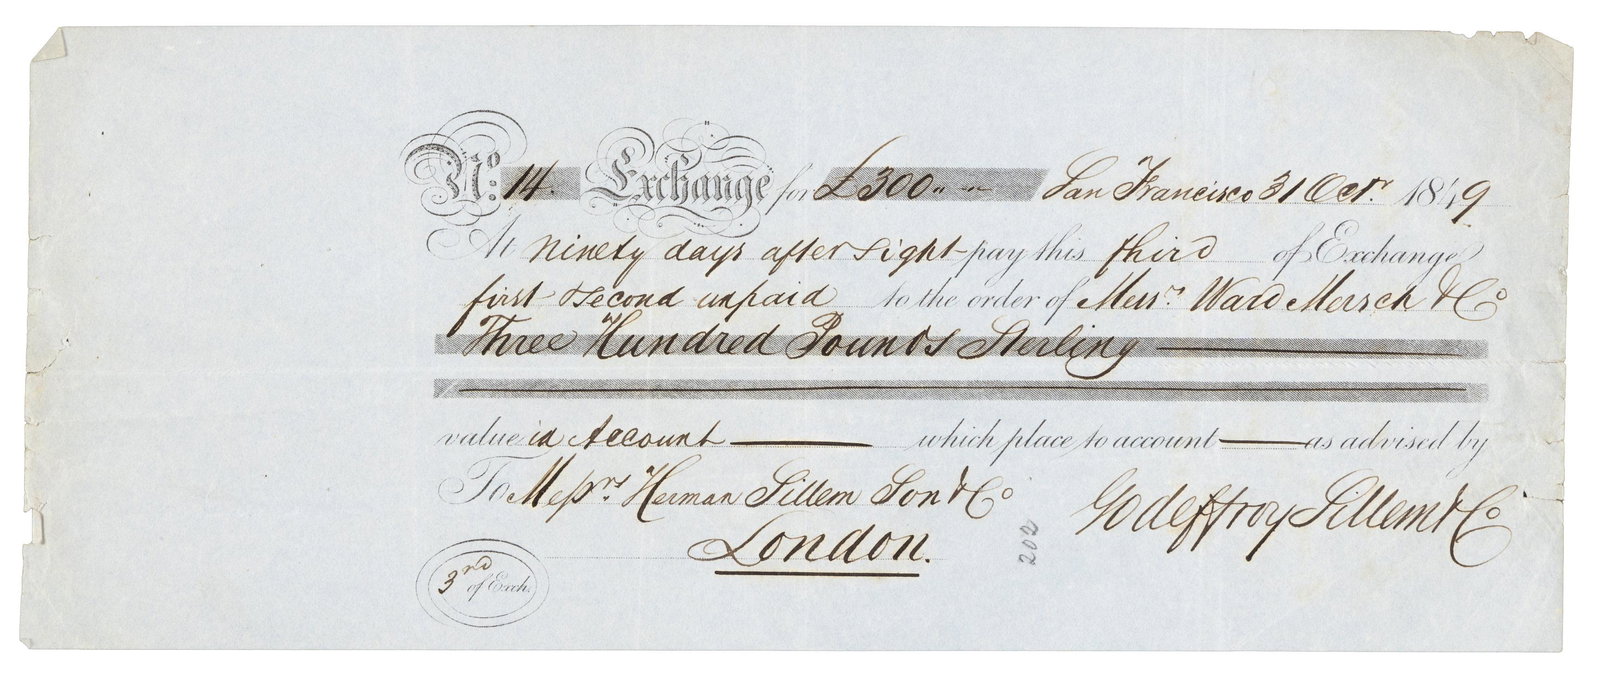 No. 14. Exchange for £300 " - " - San Francisco 31 Octr. 1849
At ninety days after sight pay this third of Exchange
first & second unpaid to the order of Messrs. Ward Mersch & Co
Three Hundred Pounds Sterling
value in Account which place to account as advised by
To Messrs. Herman Sillem Son & Co. Godeffroy Sillem & Co
London.
3rd of Exch.
202